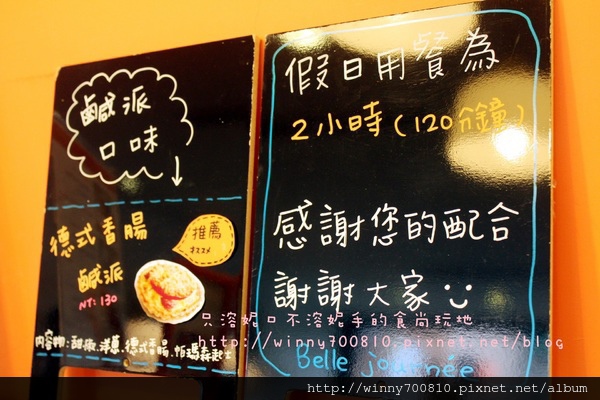 鹹派
口味
德式香腸
推薦
鹹派
NT: 130
內容物:甜椒.洋蔥.德式香腸.帕瑪森起士
假日用餐為
2小時(120分鐘)
感謝您的配合
謝謝大家
Belle journée
只溶妮口不溶妮手的食尚玩地
http://winny700810.pixnet.net/blog
http://winny700810.pixnet.net/album